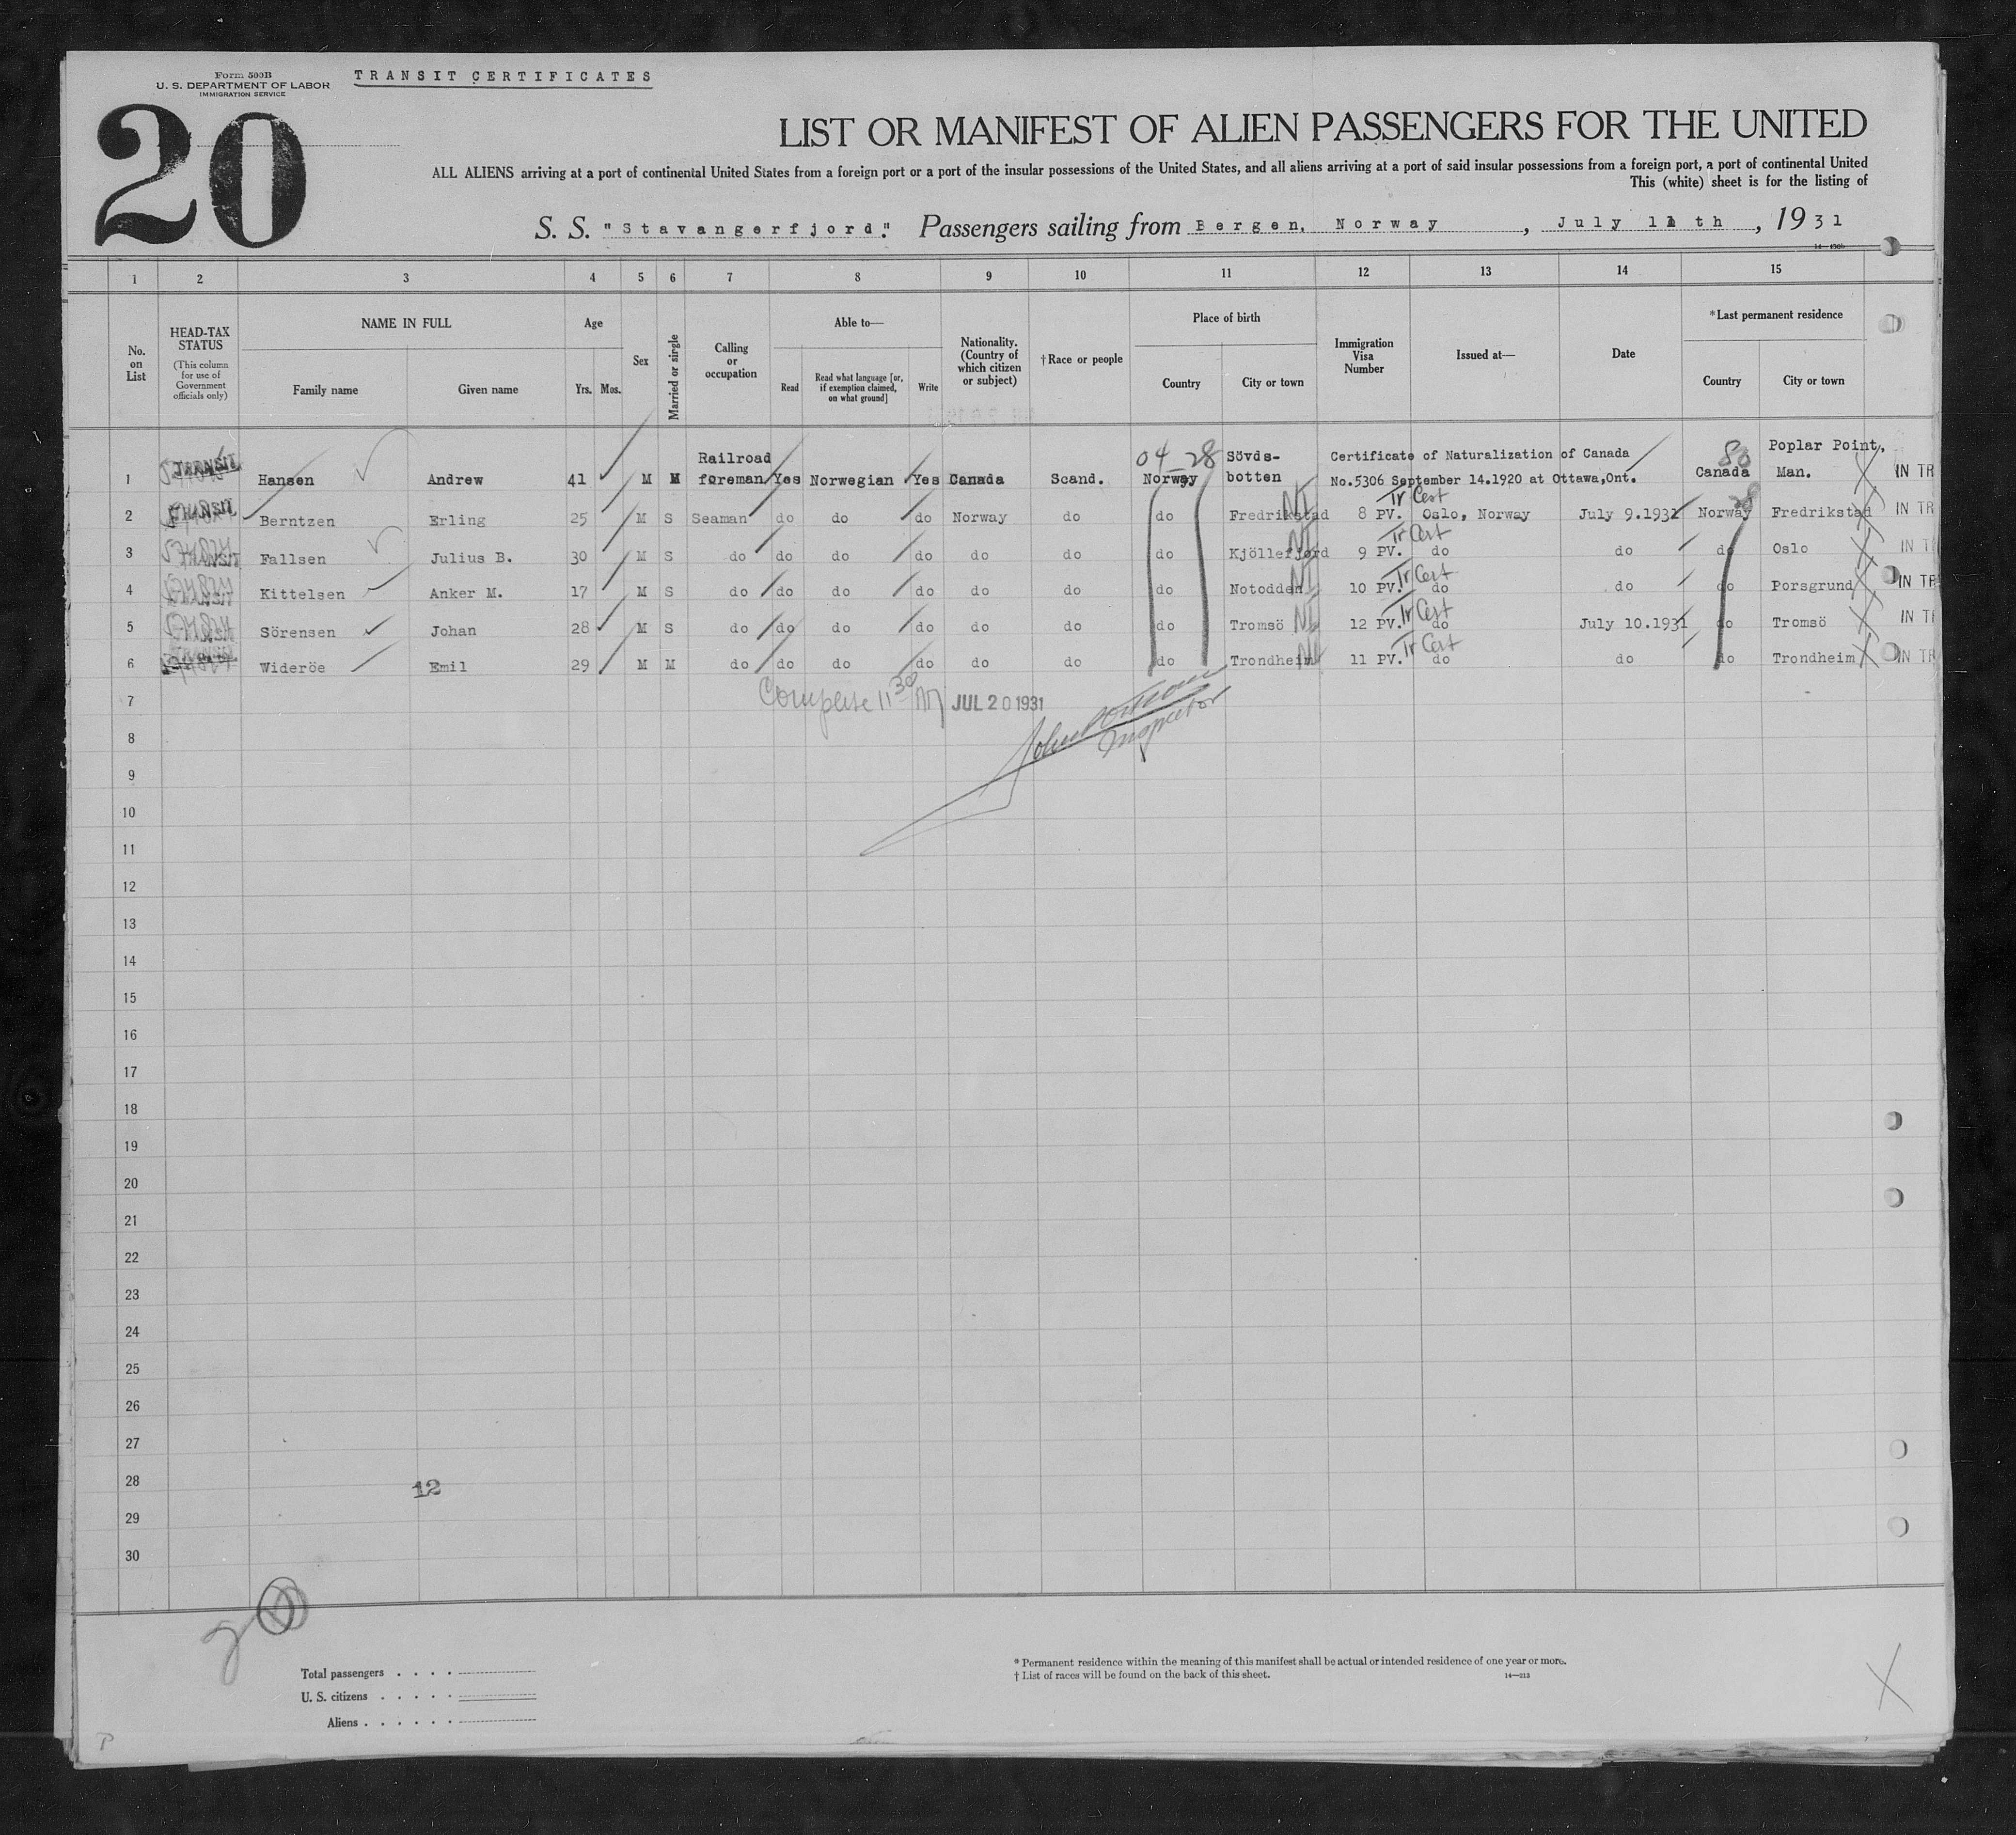 Form 500B
U. S. DEPARTMENT OF LABOR
IMMIGRATION SERVICE
TRANSIT CERTIFICATES
20
LIST OR MANIFEST OF ALIEN PASSENGERS FOR THE UNITED
ALL ALIENS arriving at a port of continental United States from a foreign port or a port of the insular possessions of the United States, and all aliens arriving at a port of said insular possessions from a foreign port, a port of continental United
This (white) sheet is for the listing of
S. S. "Stavangerfjord". Passengers sailing from Bergen, Norway, July 11 th, 1931
1 2 3 4 5 6 7 8 9 10 11 12 13 14 15
No. on List
HEAD-TAX STATUS
(This column for use of Government officials only)
NAME IN FULL
Family name Given name
Age
Yrs. Mos.
Sex
Married or single
Calling or occupation
Able to—
Read
Read what language [or, if exemption claimed, on what ground]
Write
Nationality. (Country of which citizen or subject)
†Race or people
Place of birth
Country City or town
Immigration Visa Number
Issued at—
Date
*Last permanent residence
Country City or town
04-28 80
1 TRANSIT Hansen Andrew 41 M M Railroad foreman Yes Norwegian Yes Canada Scand. Norway Sövds-botten Certificate of Naturalization of Canada No.5306 September 14.1920 at Ottawa,Ont. Canada Poplar Point, Man. IN TR
2 TRANSIT Berntzen Erling 25 M S Seaman do do do Norway do do Fredrikstad 8 PV. Tr Cert Oslo, Norway July 9.1931 Norway Fredrikstad IN TR
3 TRANSIT Fallsen Julius B. 30 M S do do do do do do do Kjöllefjord 9 PV. Tr Cert do do do Oslo IN T
4 Kittelsen Anker M. 17 M S do do do do do do do Notodden 10 PV. Tr Cert do do do Porsgrund IN TR
5 Sörensen Johan 28 M S do do do do do do do Tromsö 12 PV. Tr Cert do July 10.1931 do Tromsö IN TR
6 TRANSIT Wideröe Emil 29 M M do do do do do do do Trondheim 11 PV. Tr Cert do do do Trondheim IN TR
7 Complete 11 30 AM JUL 20 1931
Inspector
8
9
10
11
12
13
14
15
16
17
18
19
20
21
22
23
24
25
26
27
28
12
29
30
Total passengers
U. S. citizens
Aliens
* Permanent residence within the meaning of this manifest shall be actual or intended residence of one year or more.
† List of races will be found on the back of this sheet.
14—213
P
X